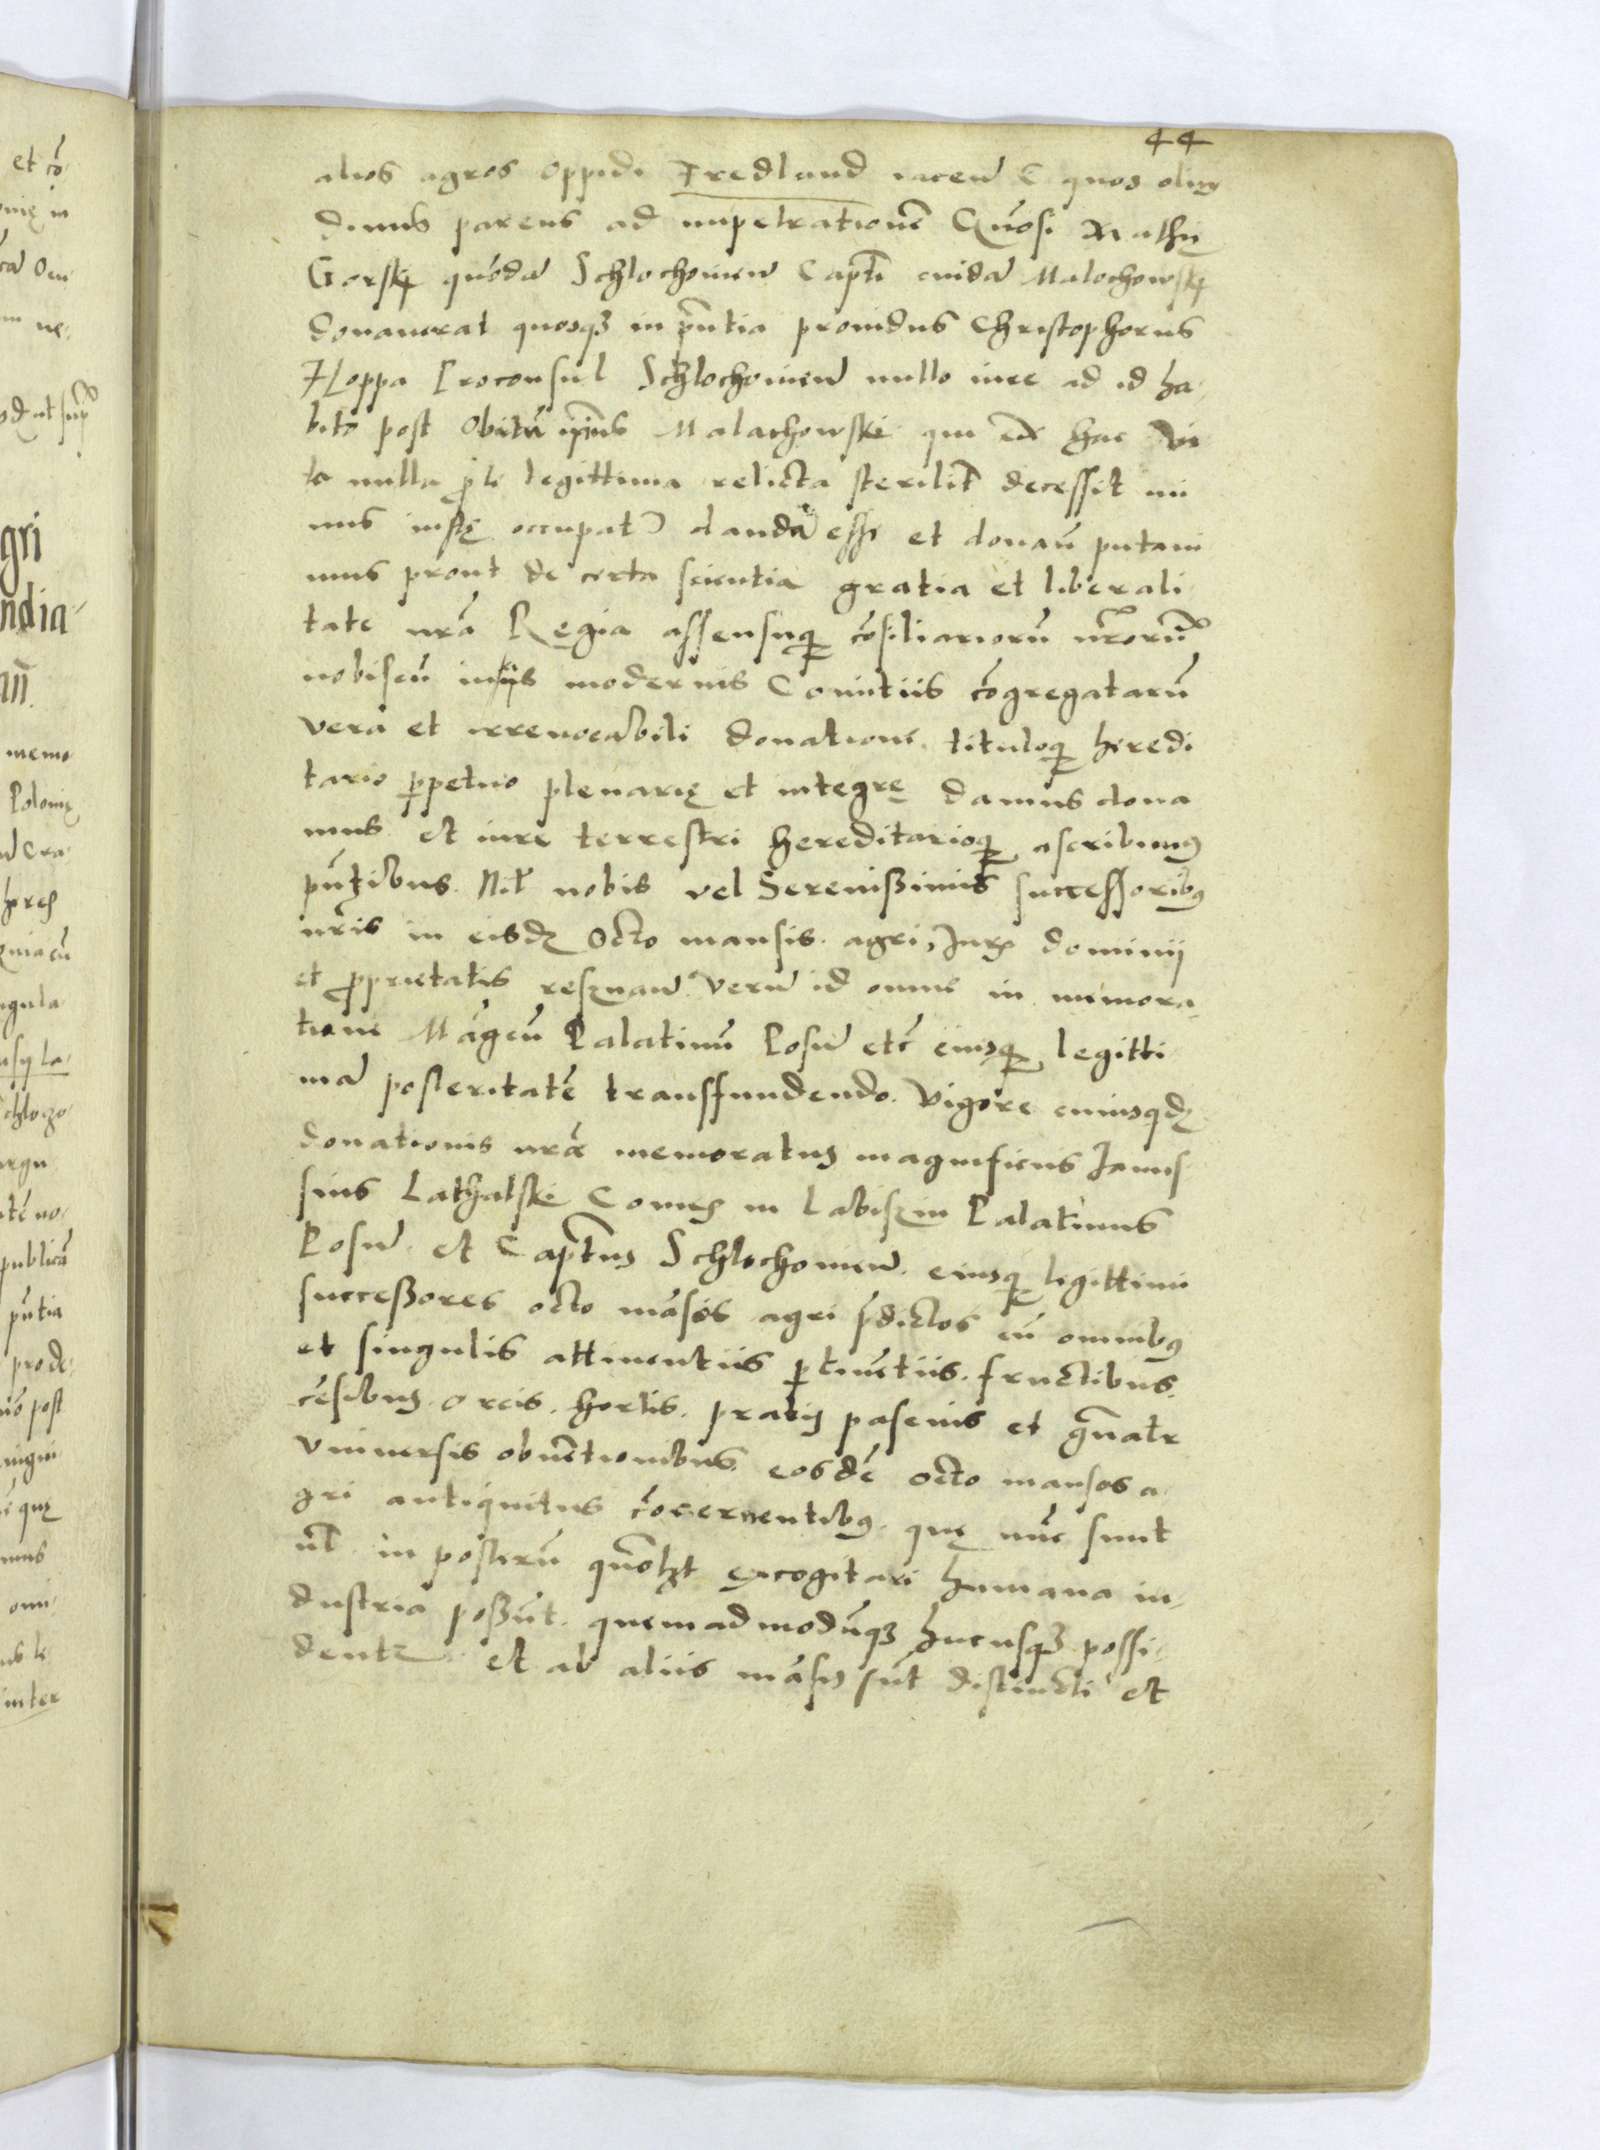 44
alios agros oppidi Fredland iacen̄ C quos olim
diuus parens ad impetrationē Gn̄osi Mathię
Gorskj quōdā Schlochouien̄ Captī cuidā Malochowskj
donauerat quosqȝ in pn̄tia prouidus Christophorus
Hoppa Proconsul Schlochouien̄ nullo iure ad id ha-
bito post obitū ip̄ius Malachowski qui hac vi
ta nulla ꝓle legittima relicta sterilitr̄ decessit mi
nus iustę occupat dandā esse et donan̄ putaui
mus prout de certa scientia gratia et liberali
tate nr̄a Regia assensuqꝫ cōsiliariorū nr̄orū
nobiscū in iis modernis Comitiis cōgregatarū
vera et irreuocabili donatione tituloqꝫ heredi
tario ꝑpetuo plenarię et integrę damus dona
mus et iure terrestri hereditarioqꝫ ascribimus
pn̄tibus. Nil nobis vel Serenißimis successoribꝰ
nr̄is in eisdē octo mansis agri, Juris dominij
et ꝓprietatis reseruan̄ Verū id omne in memora
tum Māgcū Palatinū Posn̄ etc̄ eiusqꝫ legitti
mā posteritatē transfundendo. Vigore cuiusqdē
donationis nr̄ae memoratus magnificus Janus-
sius Lathalski Comes in Labiszin Palatinus
Posn̄. et Captn̄us Schlochouien̄. eiusqꝫ legittimi
succeßores octo māsos agri p̄dictos cū omnibꝰ
et singulis attinentiis ꝑtinētiis. fructibus.
cēsibus. orcis. hortis. pratis pascuis et gn̄alr̄
vniuersis obuētionibus eosdē octo mansos a
gri antiquitus cōcernentibꝰ. quę nūc sunt
vl̄ in posterū quōlꝫt excogitari humana in-
dustria poßūt. quemadmodūqȝ hucusqȝ possi-
dentr et ab aliis māsis sūt distincti et